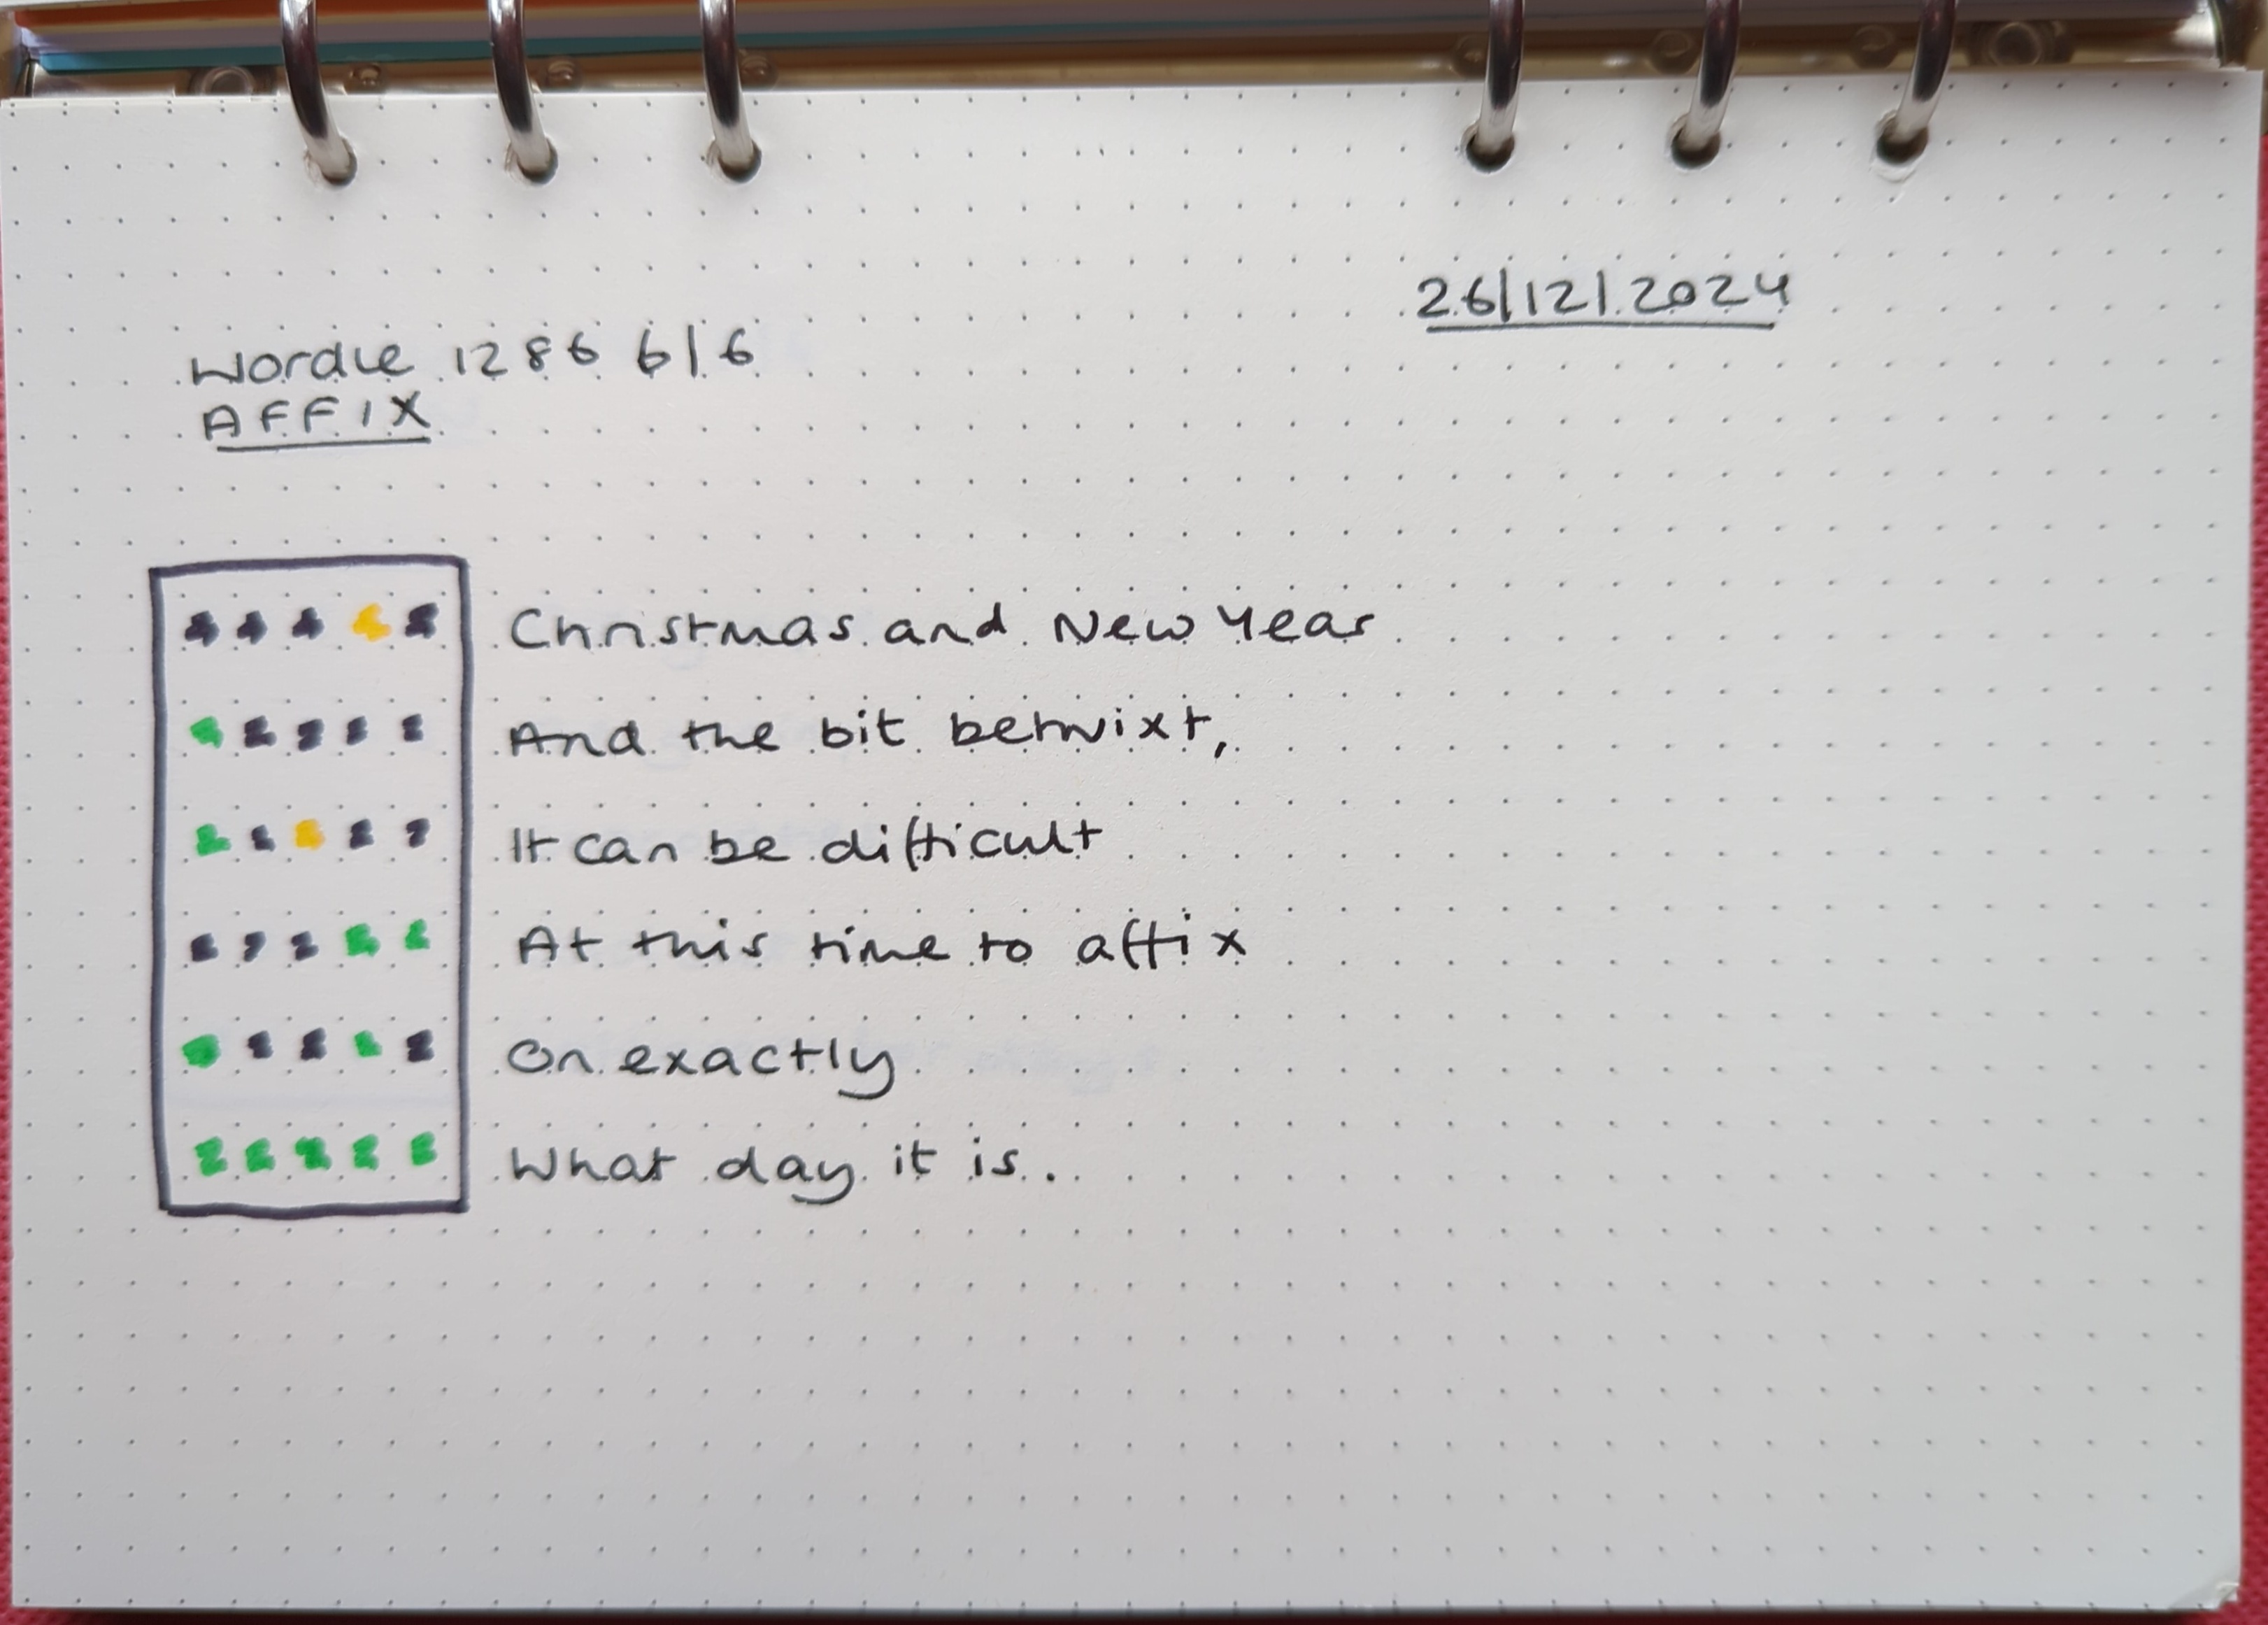 26/12/2024
Wordle 1286 6/6
AFFIX
Christmas and New Year
And the bit betwixt,
It can be difficult
At this time to affix
On exactly
What day it is.